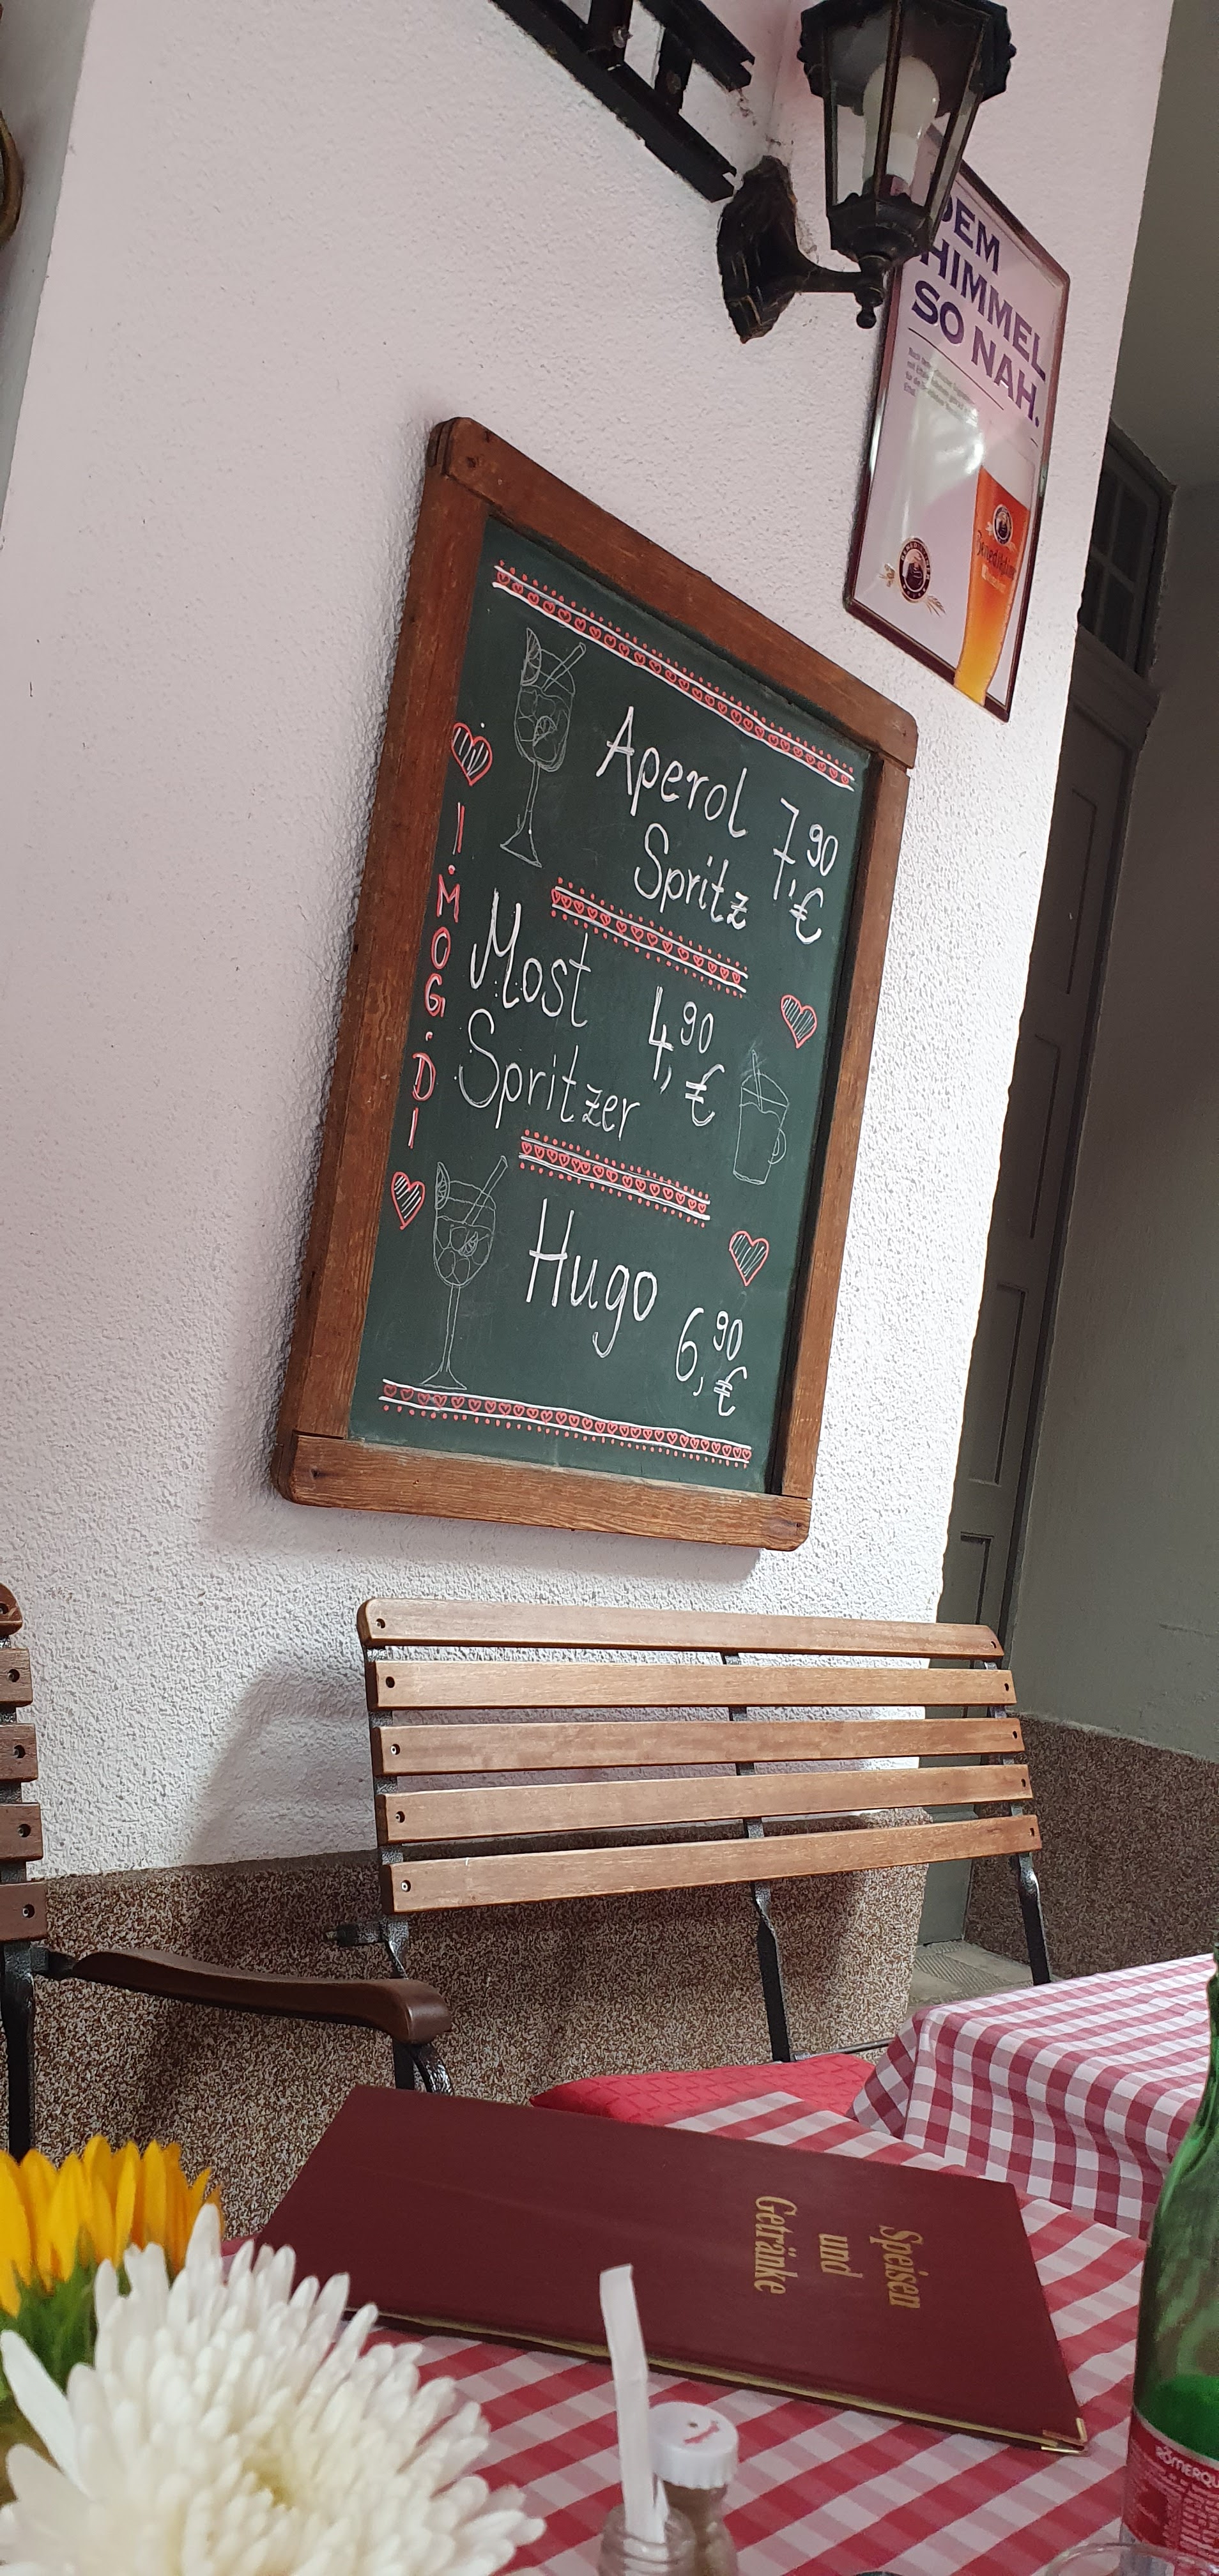 DEM
HIMMEL
SO NAH.
Aperol
Spritz
7,90
€
Most
Spritzer
4,90
€
Hugo
6,90
€
I MOG DI
Speisen
und
Getränke